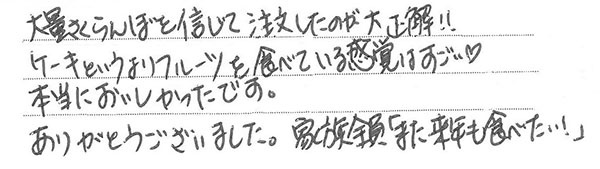 大量さくらんぼを信じて注文したのが大正解!!
ケーキというよりフルーツを食べている感覚はすごい♡
本当においしかったです。
ありがとうございました。家族全員「また来年も食べたい!」